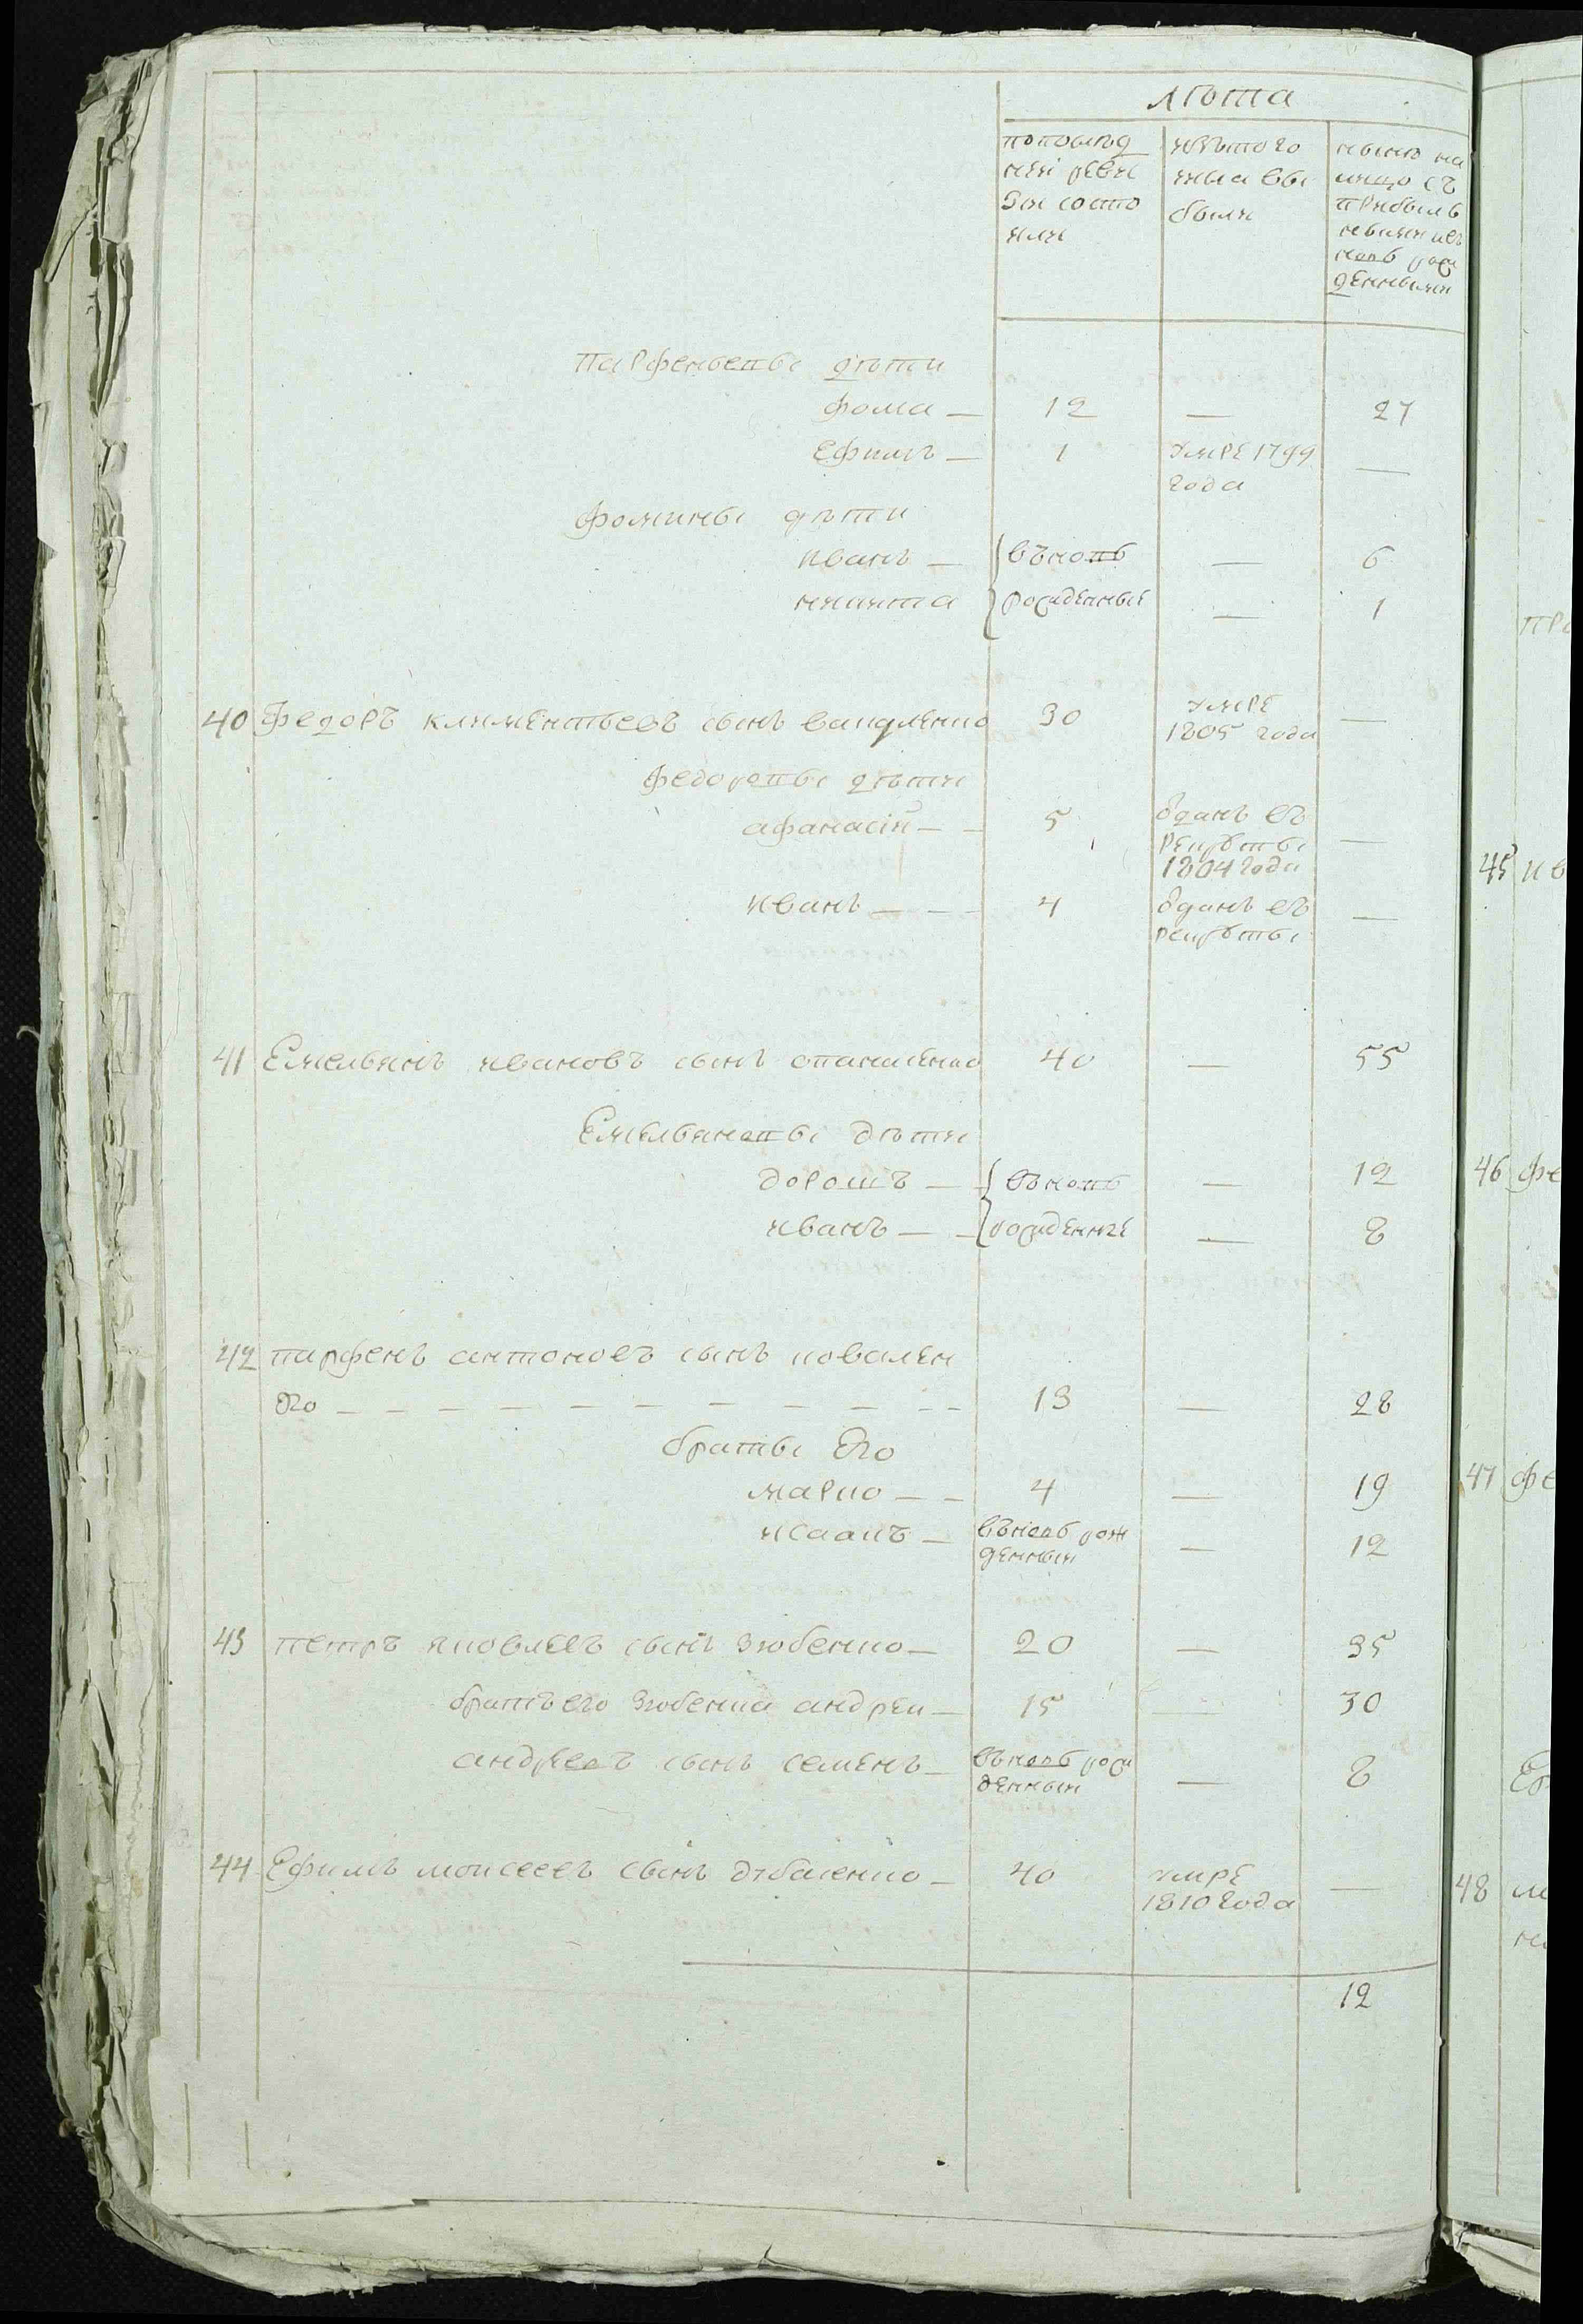 лѣта
попослѣд
ней реви
зіи состо
яли
изътого
числа вы
были
нынѣ на
лицо съ
прибыль
ными и въ
новь рож
денными
Парфеньевы дѣти
фома — 12 — 27
Ефимъ — 1 умре 1799 —
года
фомины дѣти
иванъ — въновь — 6
никита рожденные — 1
40 Федоръ климентьевъ сынъ 30 умре —
1805 года
Федоровы дѣти
афанасій — — 5 ѿданъ въ —
рекруты
1804 года
иванъ — — — 4 ѿданъ въ —
рекруты
41 Емельянъ ивановъ сынъ опанасенко 40 — 55
Емельяновы дѣти
дорошъ — въновь — 12
иванъ — — рожденніе — 8
42 парфенъ антоновъ сынъ ковален
ко — — — — — — — — — — — 13 — 28
братьи Его
марко — — 4 — 19
исаакъ — въновь рож — 12
денныи
43 петръ яковлевъ сынъ зюбенко — 20 — 35
братъ его зюбенка андреи — 15 — 30
андреевъ сынъ семенъ — въновь рож — 8
денныи
44 Ефимъ моисеевъ сынъ — 40 умре —
1810 года
12
45 ив
46 фе
47 фе
48